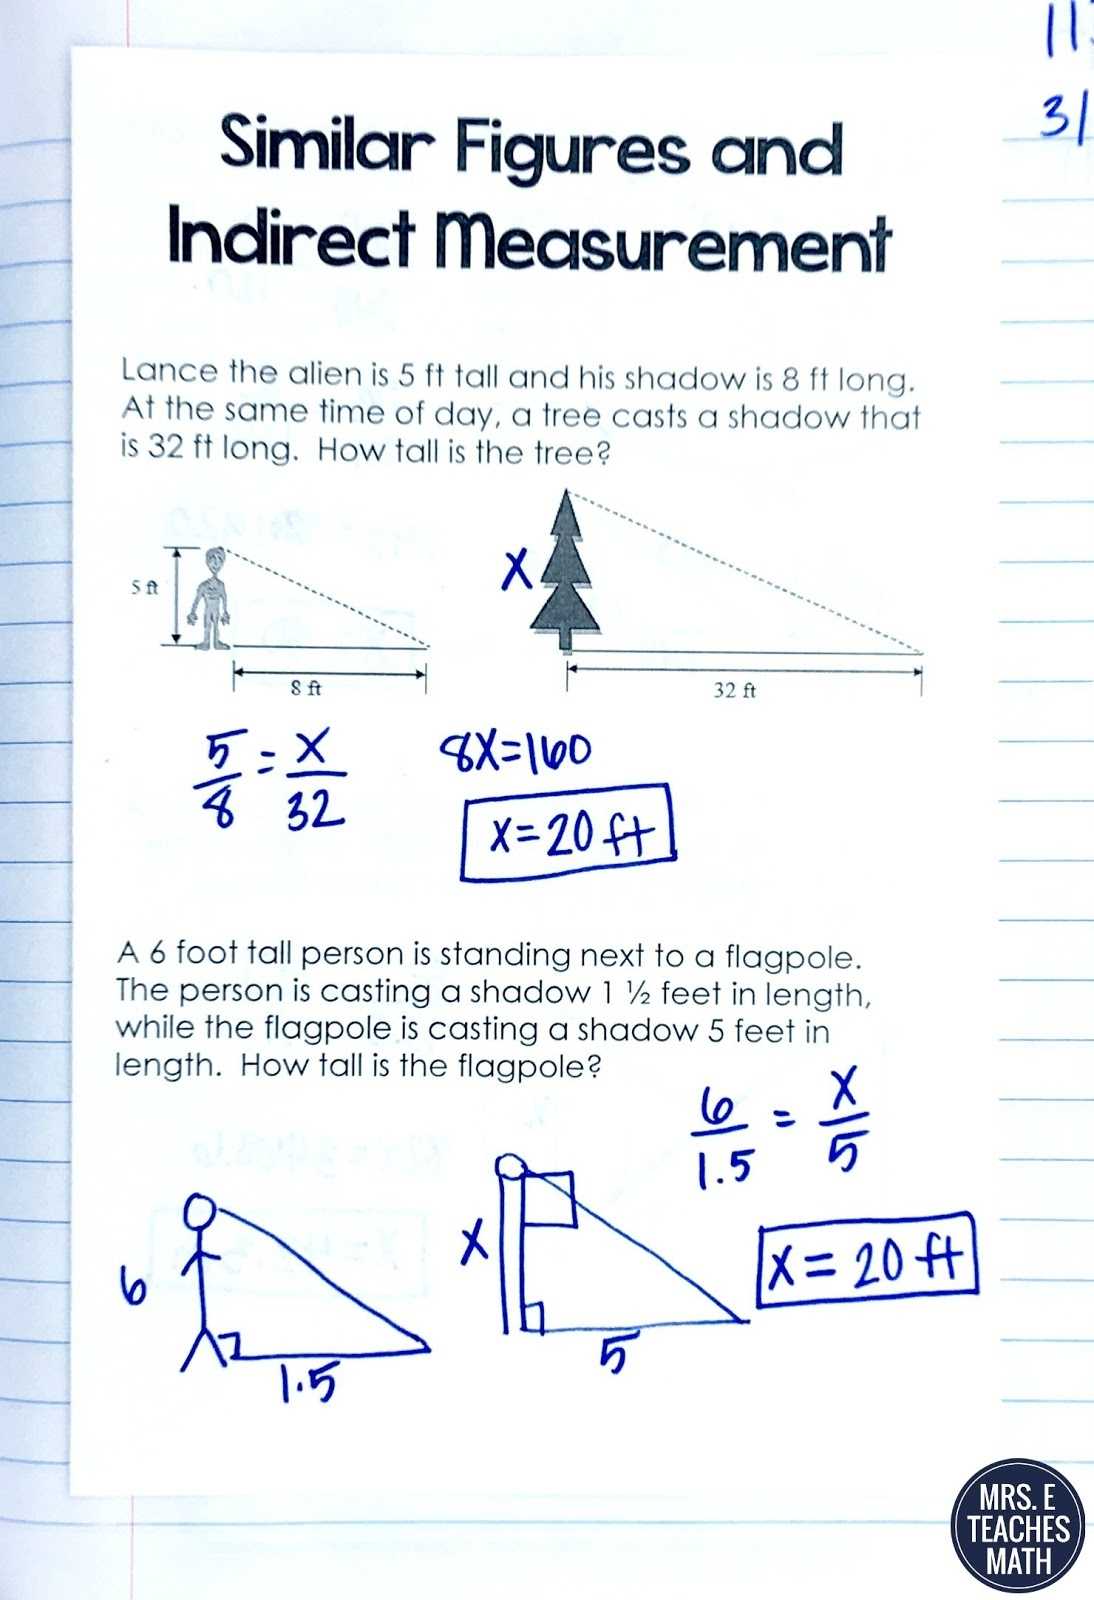 11
3/
Similar Figures and
Indirect Measurement
Lance the alien is 5 ft tall and his shadow is 8 ft long.
At the same time of day, a tree casts a shadow that
is 32 ft long. How tall is the tree?
5 ft
X
8 ft
32 ft
5/8 = X/32
8X=160
X=20 ft
A 6 foot tall person is standing next to a flagpole.
The person is casting a shadow 1 ½ feet in length,
while the flagpole is casting a shadow 5 feet in
length. How tall is the flagpole?
6/1.5 = X/5
6
X
X = 20 ft
1.5
5
MRS. E
TEACHES
MATH